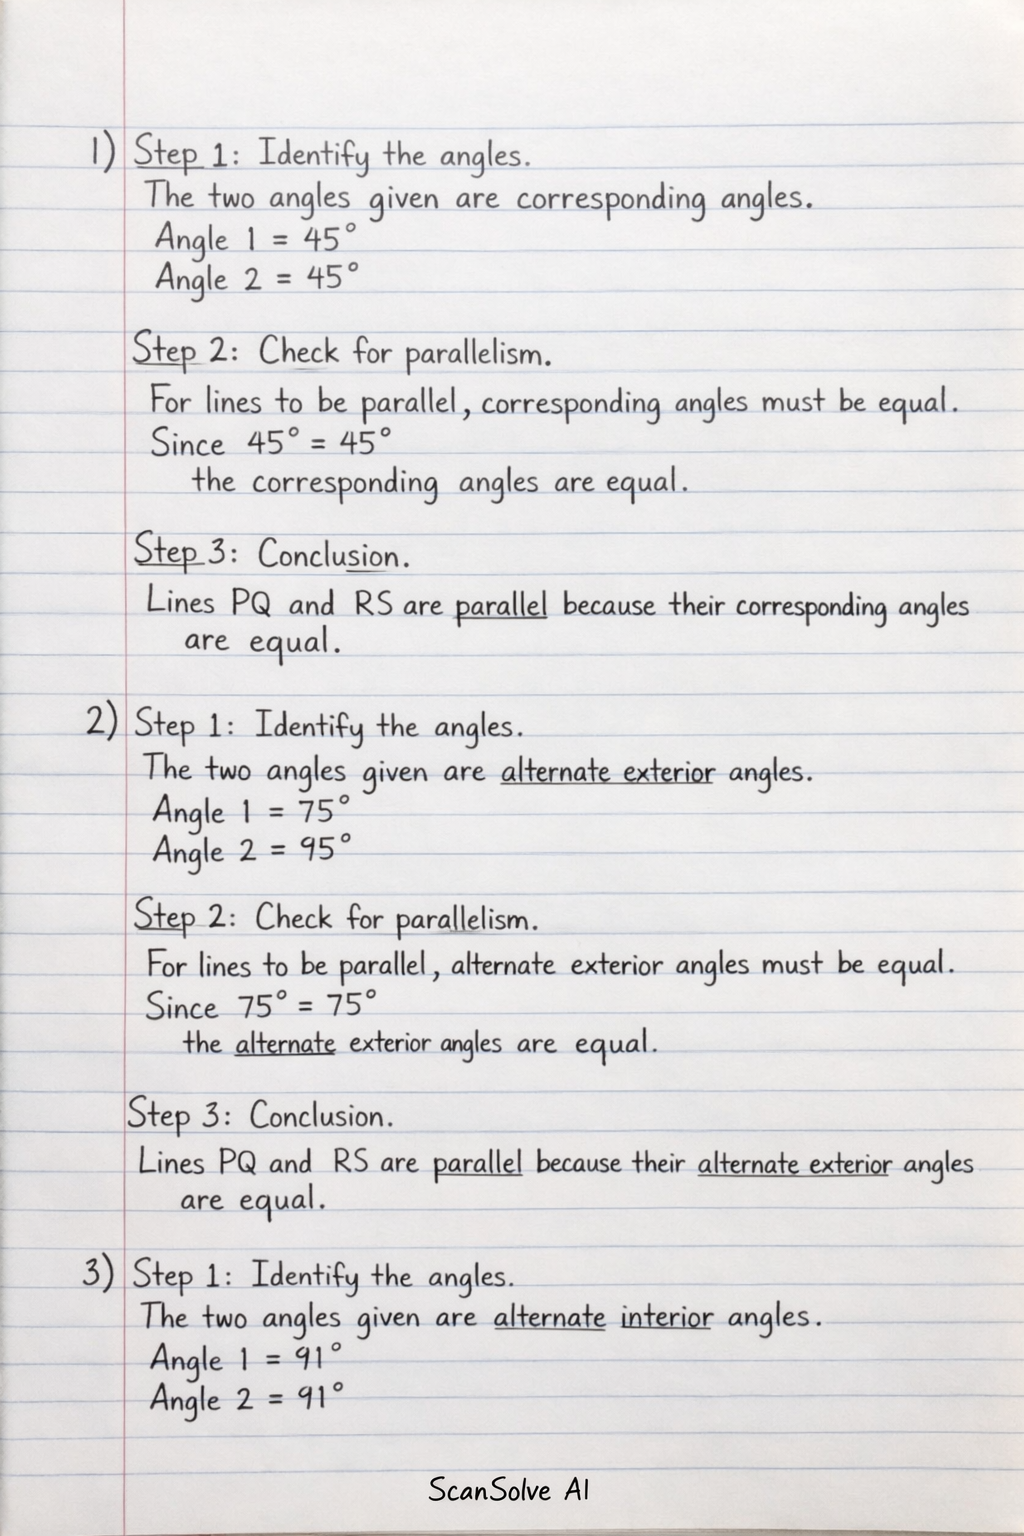 1) Step 1: Identify the angles.
The two angles given are corresponding angles.
Angle 1 = 45°
Angle 2 = 45°
Step 2: Check for parallelism.
For lines to be parallel, corresponding angles must be equal.
Since 45° = 45°
the corresponding angles are equal.
Step 3: Conclusion.
Lines PQ and RS are parallel because their corresponding angles
are equal.
2) Step 1: Identify the angles.
The two angles given are alternate exterior angles.
Angle 1 = 75°
Angle 2 = 95°
Step 2: Check for parallelism.
For lines to be parallel, alternate exterior angles must be equal.
Since 75° = 75°
the alternate exterior angles are equal.
Step 3: Conclusion.
Lines PQ and RS are parallel because their alternate exterior angles
are equal.
3) Step 1: Identify the angles.
The two angles given are alternate interior angles.
Angle 1 = 91°
Angle 2 = 91°
ScanSolve AI